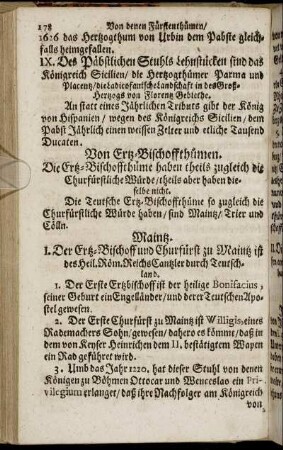 178 Von denen Fürstenthümen/
1626 das Hertzogthum von Urbin dem Pabste gleich-
falls heimgefallen.
IX. Des Päbstlichen Stuhls Lehnstücken sind das
Königreich Sicilien/ die Hertzogthümer Parma und
Placentz/ die Ladicofanische Landschaft in des Groß-
Hertzogs von Florentz Gebiethe.
An statt eines Jährlichen Tributs gibt der König
von Hispanien/ wegen des Königreichs Sicilien/ dem
Pabst Jährlich einen weissen Zelter und etliche Tausend
Ducaten.
Von Ertz-Bischoffthümen.
Die Ertz-Bischoffthüme haben theils zugleich die
Churfürstliche Würde/ theils aber haben die-
selbe nicht.
Die Teutsche Ertz-Bischoffthüme so zugleich die
Churfürstliche Würde haben/ sind Maintz/ Trier und
Cölln.
Maintz.
I. Der Ertz-Bischoff und Churfürst zu Maintz ist
des Heil. Röm. Reichs Cantzler durch Teutsch-
land.
1. Der Erste Ertzbischoff ist der heilige Bonifacius,
seiner Geburt ein Engelländer/ und derer Teutschen Apo-
stel gewesen.
2. Der Erste Churfürst zu Maintz ist Willigis, eines
Rademachers Sohn/ gewesen/ dahero es kömmt/ daß in
dem von Keyser Heinrichen dem II. bestätigtem Wapen
ein Rad geführet wird.
3. Umb das Jahr 1220. hat dieser Stuhl von denen
Königen zu Böhmen Ottocar und Wenceslao ein Pri-
vilegium erlanget/ daß ihre Nachfolger am Königreich
von